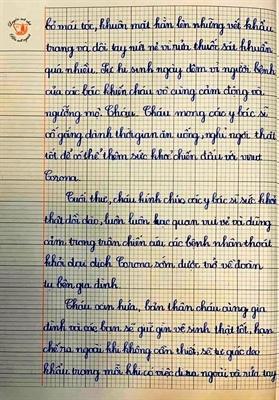 bỏ mái tóc, khuôn mặt hằn lên những vết khẩu
trang và đôi tay nứt nẻ vì rửa thuốc sát khuẩn
quá nhiều. Sự hi sinh ngày đêm vì người bệnh
của các bác khiến cháu vô cùng cảm động và
ngưỡng mộ. Cháu mong các y bác sĩ
cố gắng dành thời gian ăn uống, nghỉ ngơi thật
tốt để có thể thêm sức khoẻ chiến đấu và vượt
Corona.
Cuối thư, cháu kính chúc các y bác sĩ sức khoẻ
thật dồi dào, luôn luôn lạc quan vui vẻ và dũng
cảm trong trận chiến cứu các bệnh nhân thoát
khỏi đại dịch Corona sớm được trở về đoàn
tụ bên gia đình.
Cháu xin hứa, bản thân cháu cùng gia
đình và các bạn sẽ giữ gìn vệ sinh thật tốt, hạn
chế ra ngoài khi không cần thiết, sẽ tự giác đeo
khẩu trang mỗi khi có việc đi ra ngoài và rửa tay